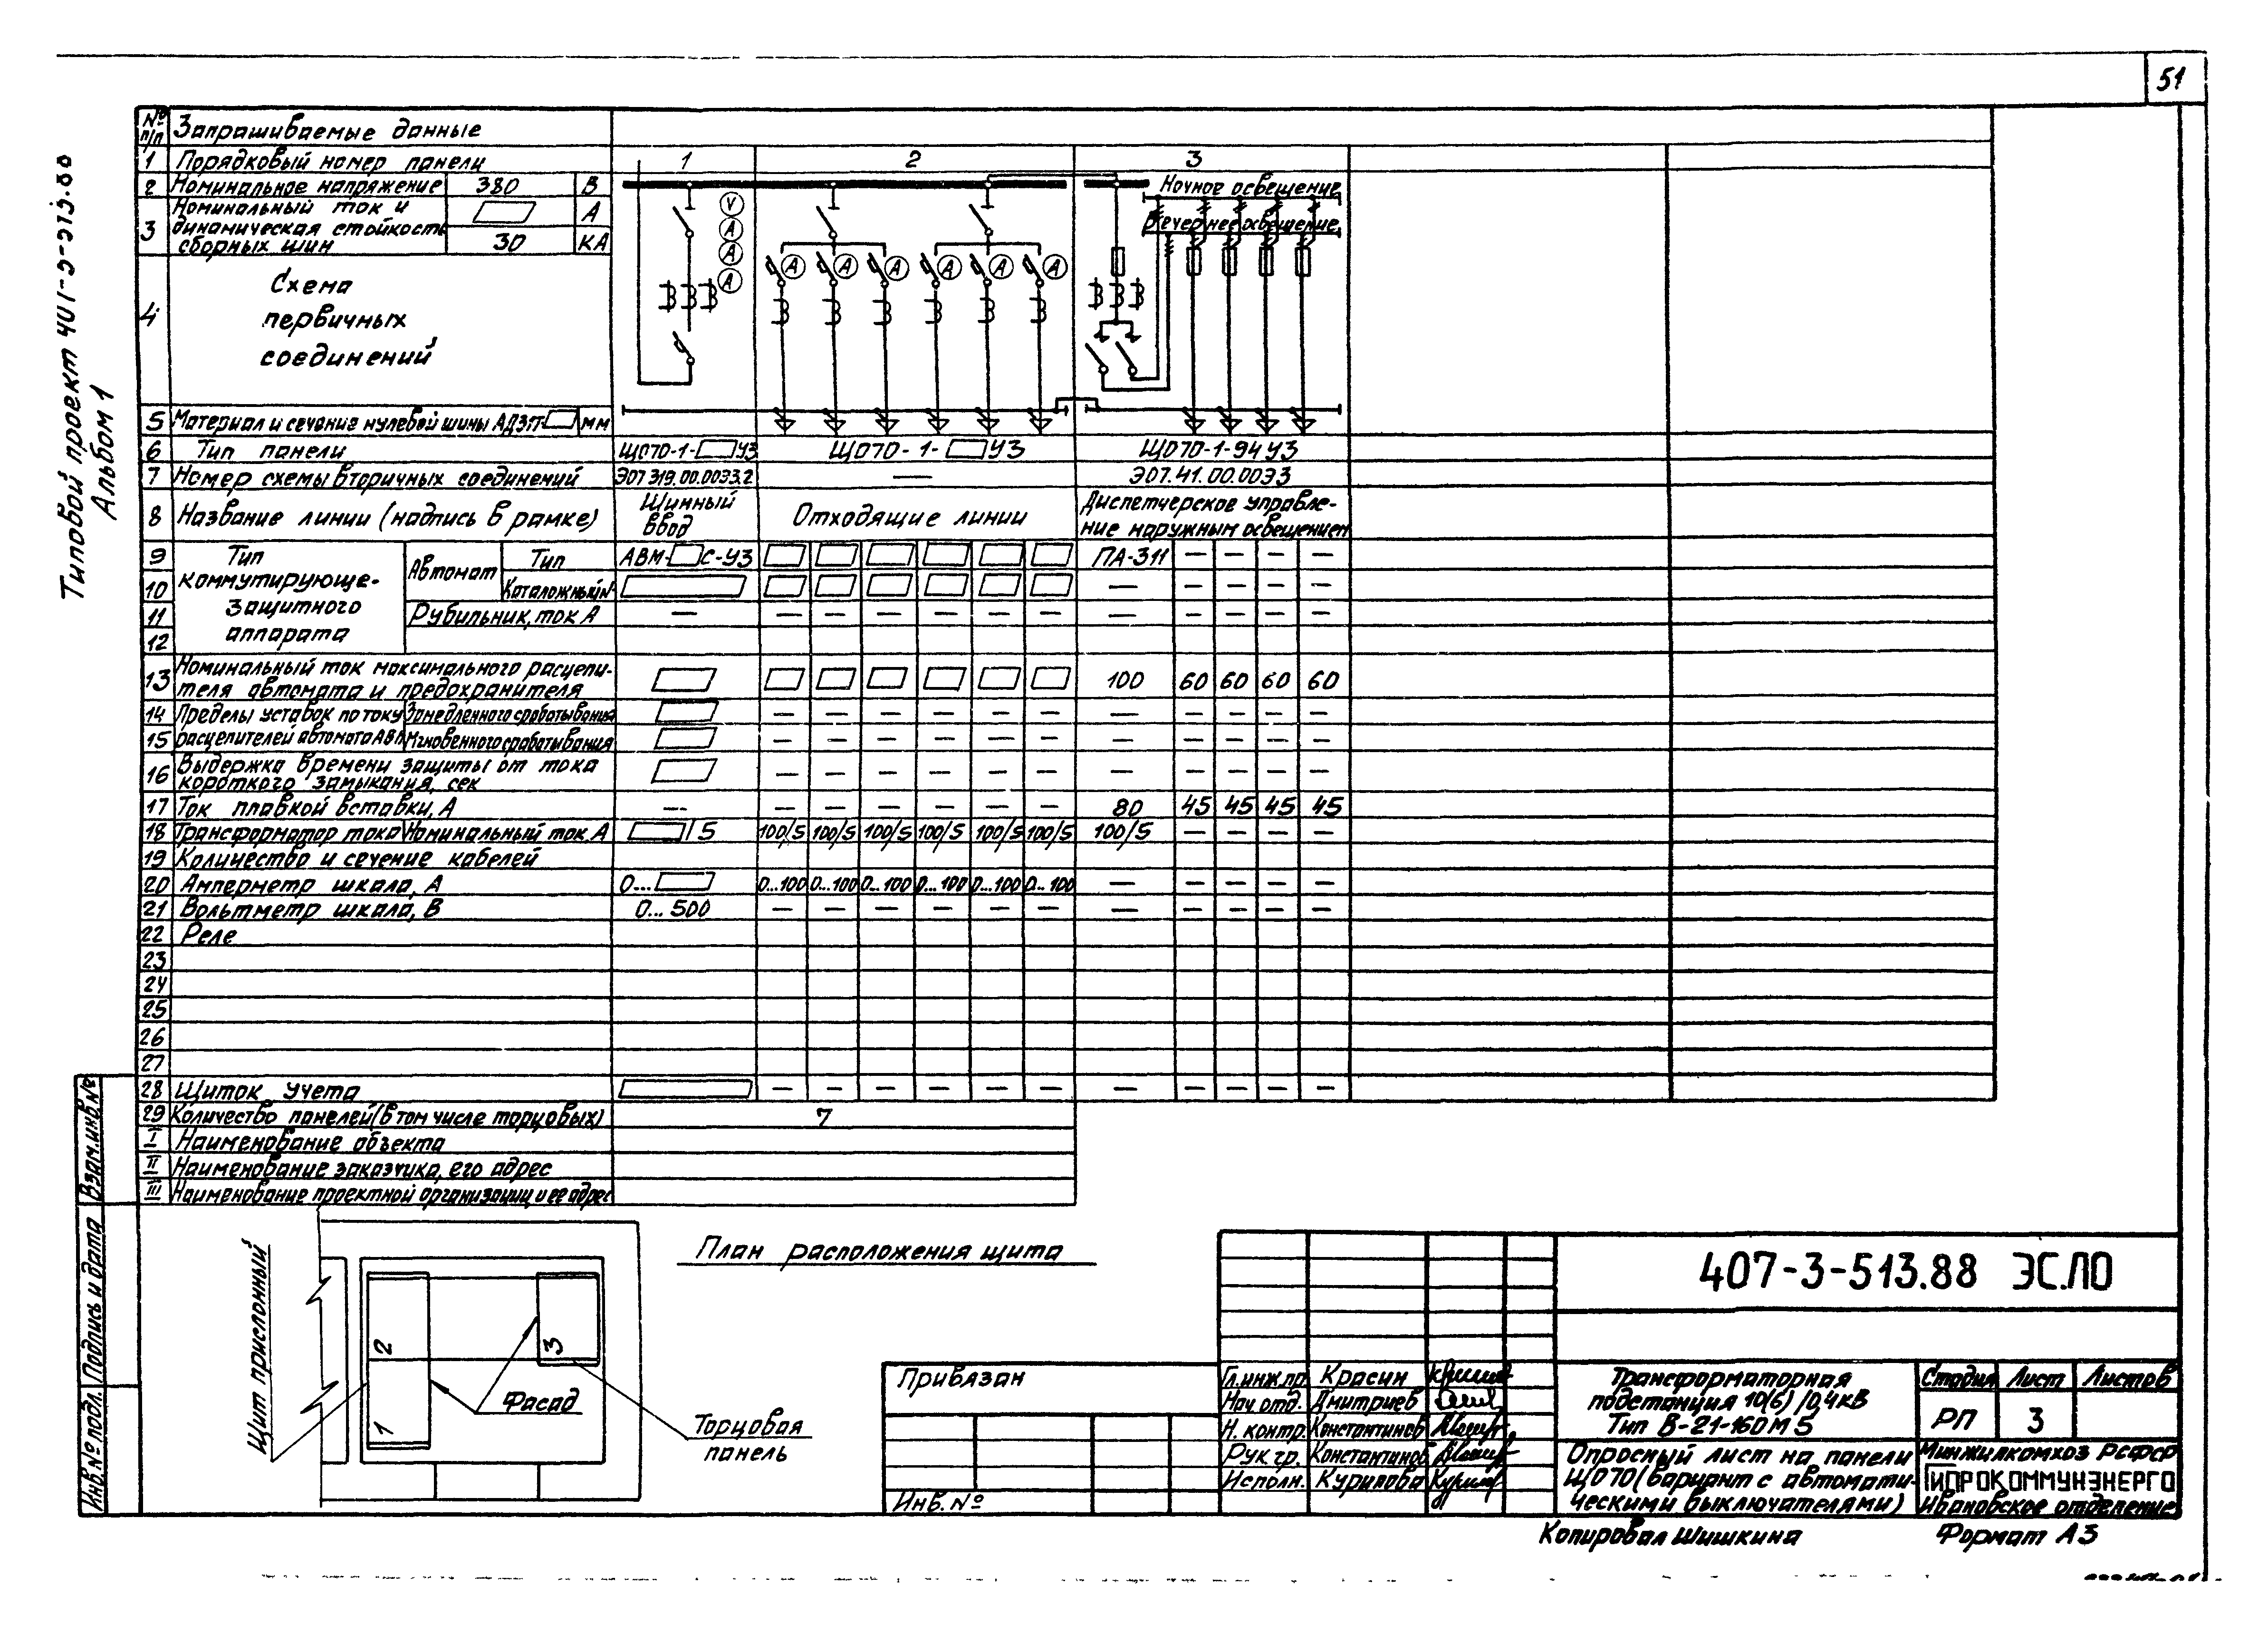 51
Типовой проект 407-3-513.88
Альбом 1
№ п/п Запрашиваемые данные
1 Порядковый номер панели 1 2 3
2 Номинальное напряжение 380 В
3 Номинальный ток и динамическая стойкость сборных шин А
30 КА
V
А
А
А
А А А А А А
Ночное освещение
Вечернее освещение
4 Схема
первичных
соединений
5 Материал и сечение нулевой шины АДЗ1Т- мм
6 Тип панели ЩО70-1- У3 ЩО70-1- У3 ЩО70-1-94 У3
7 Номер схемы вторичных соединений ЭО7.319.00.00ЭЗ.2 — ЭО7.41.00.00ЭЗ
8 Название линии (надпись в рамке) Шинный ввод Отходящие линии Диспетчерское управле-
ние наружным освещением
9 Тип коммутирующе-защитного аппарата Автомат Тип АВМ- С-У3 ПА-311 — — — —
10 Каталожный № — — — — —
11 Рубильник, ток А — — — — — — — — — — — —
12
13 Номинальный ток максимального расцепи-
теля автомата и предохранителя 100 60 60 60 60
14 Пределы уставок по току Замедленного срабатывания — — — — — — — — — — —
15 расцепителей автомата АВМ Мгновенного срабатывания — — — — — — — — — — —
16 Выдержка времени защиты от тока
короткого замыкания, сек — — — — — — — — — — —
17 Ток плавкой вставки, А — — — — — — — 80 45 45 45 45
18 Трансформатор тока Номинальный ток, А /5 100/5 100/5 100/5 100/5 100/5 100/5 100/5 — — — —
19 Количество и сечение кабелей
20 Амперметр шкала, А 0... 0...100 0...100 0...100 0...100 0...100 0...100 — — — — —
21 Вольтметр шкала, В 0...500 — — — — — — — — — — —
22 Реле
23
24
25
26
27
28 Щиток учета — — — — — — — — — — —
29 Количество панелей (в том числе торцовых) 7
I Наименование объекта
II Наименование заказчика, его адрес
III Наименование проектной организации и ее адрес
План расположения щита
Щит прислонный
1
2
3
Фасад
Торцовая
панель
Взам.инв.№
Подпись и дата
Инв.№ подл.
Привязан
Инв.№
407-3-513.88 ЭС.ЛО
Гл.инж.пр. Красин
Нач.отд. Дмитриев
Н.контр. Константинов
Рук.гр. Константинов
Исполн. Курилова
Трансформаторная
подстанция 10(6)/0,4кВ
Тип В-21-160М5
Стадия Лист Листов
РП 3
Опросный лист на панели
ЩО70 (вариант с автомати-
ческими выключателями)
Минжилкомхоз РСФСР
ГИПРОКОММУНЭНЕРГО
Ивановское отделение
Копировал Шишкина Формат А3